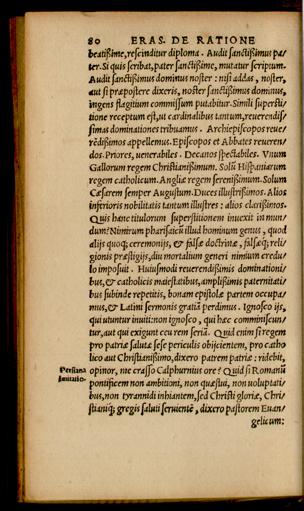 80 ERAS. DE RATIONE
beatißime, rescinditur diploma. Audit sanctißimus pa/
ter. Si quis scribat, pater sanctißime, mutatur scriptum.
Audit sanctißimus dominus noster: nisi addas, noster,
aut si præpostere dixeris, noster sanctißimus dominus,
ingens flagitium commissum putabitur. Simili supersti/
tione receptum est, ut cardinalibus tantum, reuerendis/
simas dominationes tribuamus. Archiepiscopos reue/
rēdißimos appellemus. Episcopos et Abbates reueren/
dos. Priores, venerabiles. Decanos spectabiles. Vnum
Gallorum regem Christianißimum. Solū Hispaniarum
regem catholicum. Angliæ regem serenißimum. Solum
Cæsarem semper Augustum. Duces illustrißimos. Alios
inferioris nobilitatis tantum illustres: alios clarißimos.
Quis hanc titulorum superstitionem inuexit in mun/
dum? Nimirum pharisaicū illud hominum genus, quod
alijs quoq; ceremonijs, & falsæ doctrinæ, falsæq; reli/
gionis præstigijs, diu mortalium generi nimium credu/
lo imposuit. Huiusmodi reuerendißimis dominationi/
bus, & catholicis maiestatibus, amplißimis paternitati/
bus subinde repetitis, bonam epistolæ partem occupa/
mus, & Latini sermonis gratiā perdimus. Ignosco ijs,
qui utuntur inuiti: non ignosco, qui hæc comminiscun/
tur, aut qui exigunt ceu rem seriā. Quid enim si regem
pro patriæ salute sese periculis obijcientem, pro catho
lico aut Christianißimo, dixero patrem patriæ: ridebit,
Persiana
imitatio.
opinor, me crasso Calphurnius ore? Quid si Romanū
pontificem non ambitioni, non quæstui, non uoluptati/
bus, non tyrannidi inhiantem, sed Christi gloriæ, Chri/
stianiq; gregis saluti seruientē, dixero pastorem Euan/
gelicum: